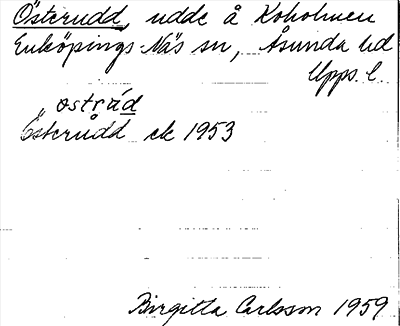 Österudd, udde å Koholmen
Enköpings-Näs sn, Åsunda hd
Upps. l.
östrud
Österudd ek 1953
Birgitta Carlsson 1959